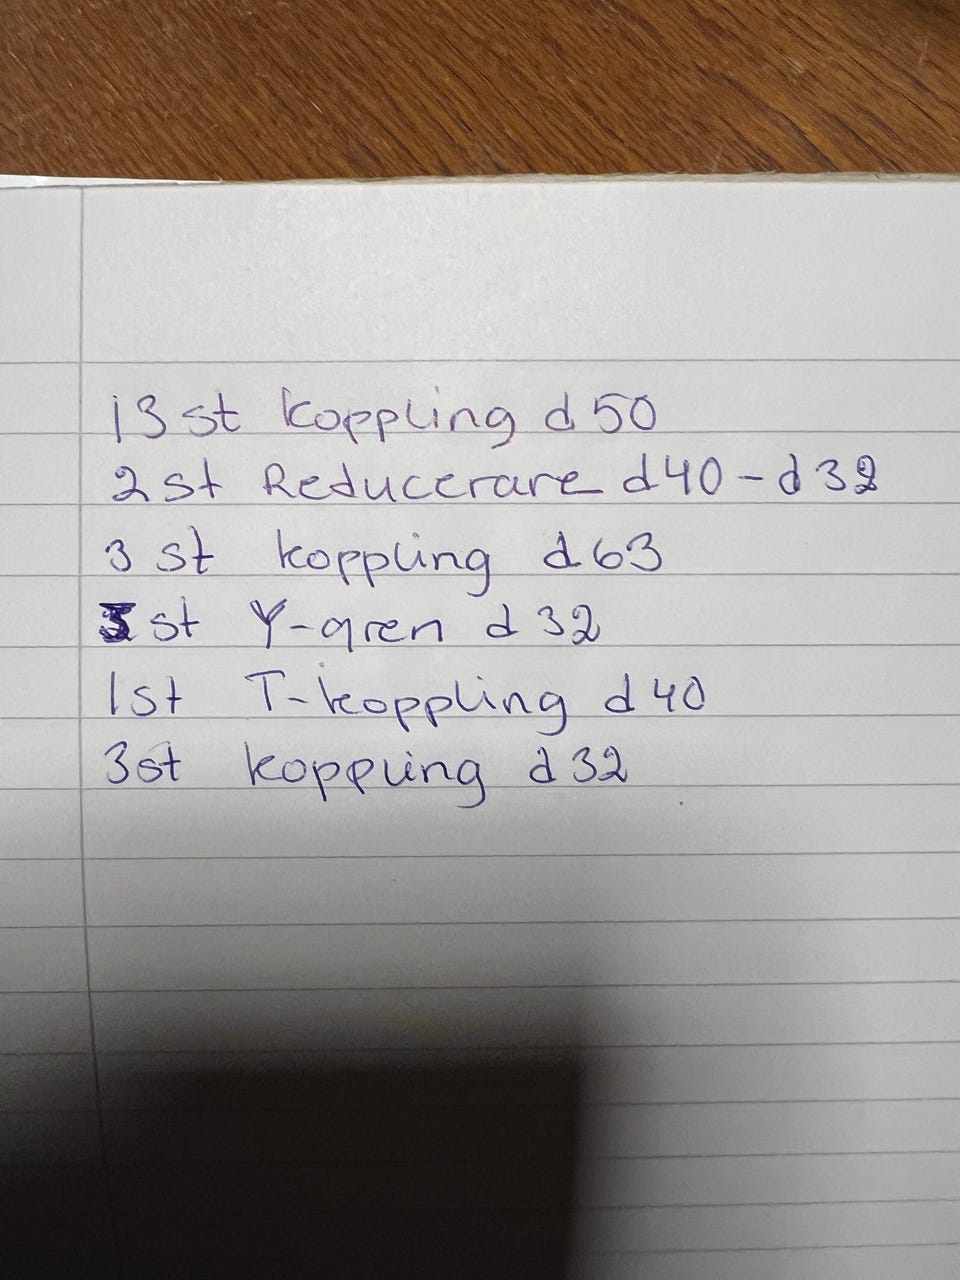 13 st koppling d50
2 st Reducerare d40-d32
3 st koppling d63
st Y-gren d32
1st T-koppling d40
3st koppling d32